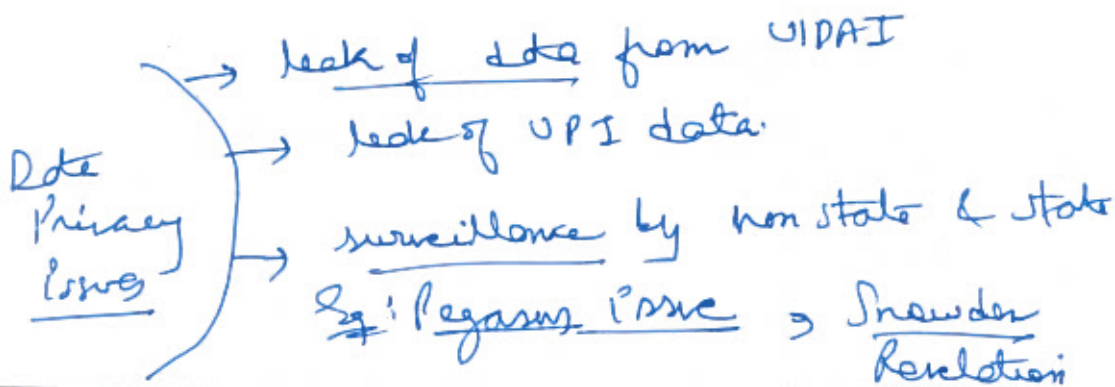 Data
Privacy
issues
→ leak of data from UIDAI
→ leak of UPI data.
→ surveillance by non state & state
Eg: Pegasus issue, Snowden
Revelation